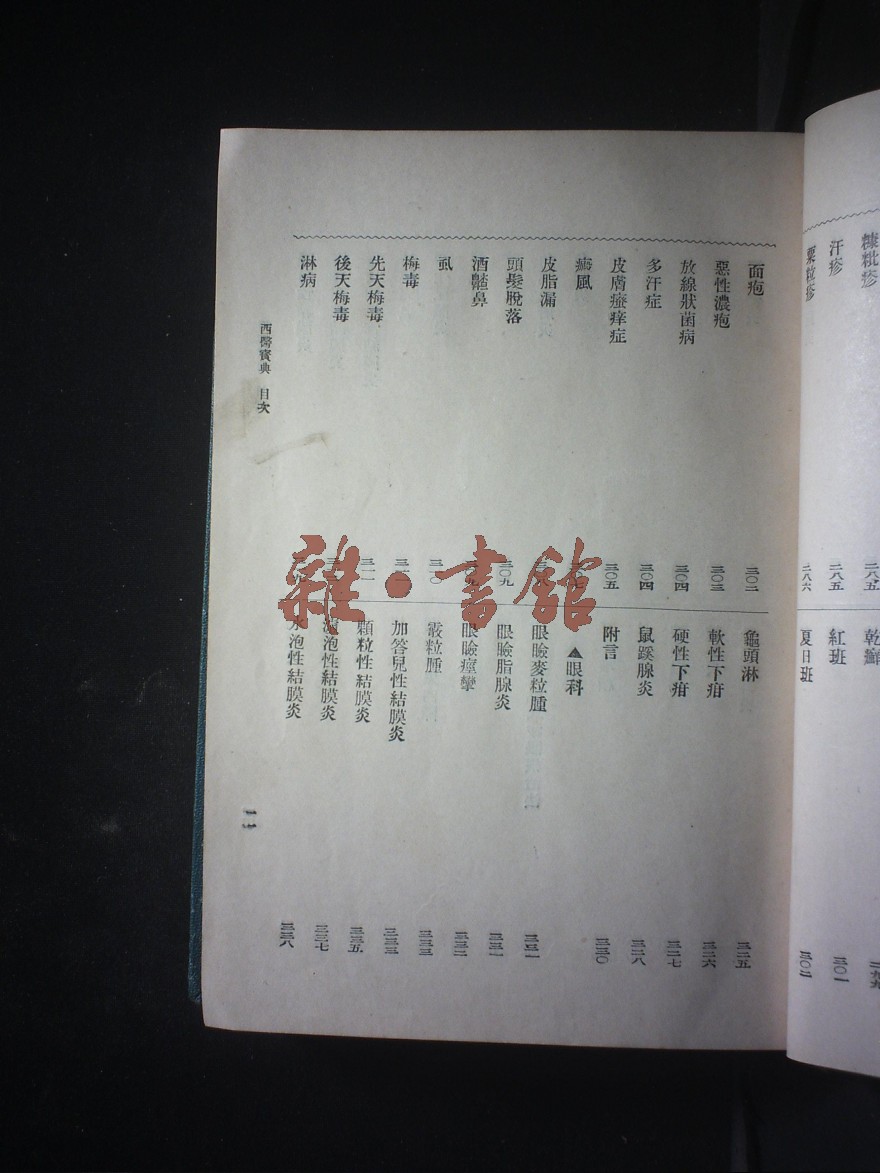 糠粃疹 二八五
汗疹 二八五
粟粒疹 二八六
乾癬 二九九
紅班 三〇一
夏日班 三〇二
面疱 三〇二
惡性濃疱 三〇三
放線狀菌病 三〇四
多汗症 三〇四
皮膚瘙痒症 三〇五
癜風
皮脂漏
頭髮脫落 三〇九
酒齇鼻
虱 三一〇
梅毒
先天梅毒
後天梅毒
淋病
龜頭淋 三二五
軟性下疳 三二六
硬性下疳 三二七
鼠蹊腺炎 三二八
附言 三三〇
▲眼科
眼瞼麥粒腫 三三一
眼瞼脂腺炎 三三一
眼瞼痙攣 三三二
霰粒腫 三三三
加答兒性結膜炎 三三三
顆粒性結膜炎 三三五
泡性結膜炎 三三七
水泡性結膜炎 三三八
西醫寶典 目次
一一
雜·書館